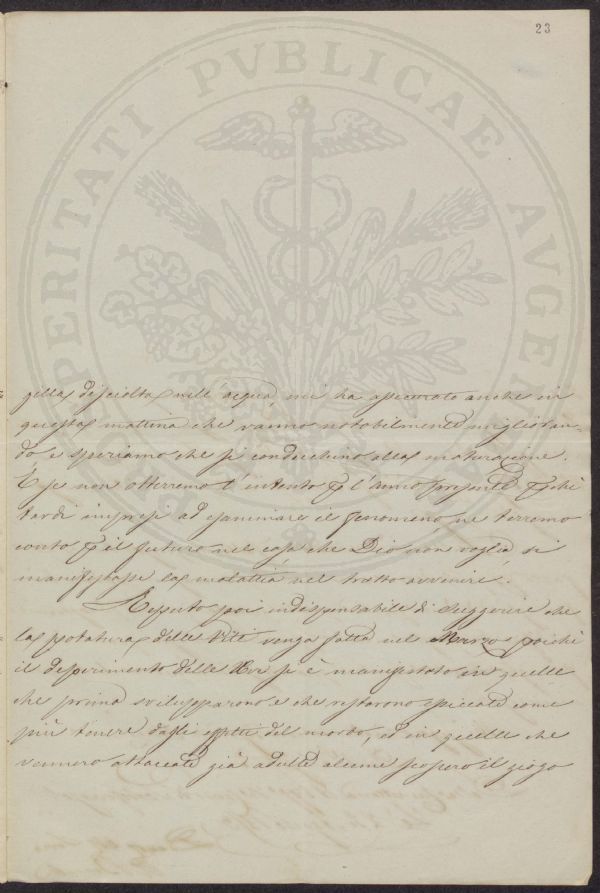 23
PROSPERITATI PVBLICAE AVGENDAE
disciolta nell'acqua, mi ha assicurato anche in
questa mattina che vanno notabilmente miglioran-
do e speriamo che si conduchino alla maturazione.
E se non otterremo l'intento p l'anno presente pchè
tardi impresi ad esaminare il fenomeno ne terremo
conto p il futuro nel caso che Dio non voglia si
manifestasse la malattia nel tratto avvenire.
Reputo poi indispensabile di suggerire che
la potatura delle Viti venga fatta nel Marzo poichè
il deperimento delle Uve si è manifestato in quelle
che prima svilupparono e che restarono spiccate come
più tenere dagli effetti del morbo, ed in quelle che
vennero attaccate già adulte alcune scopero il